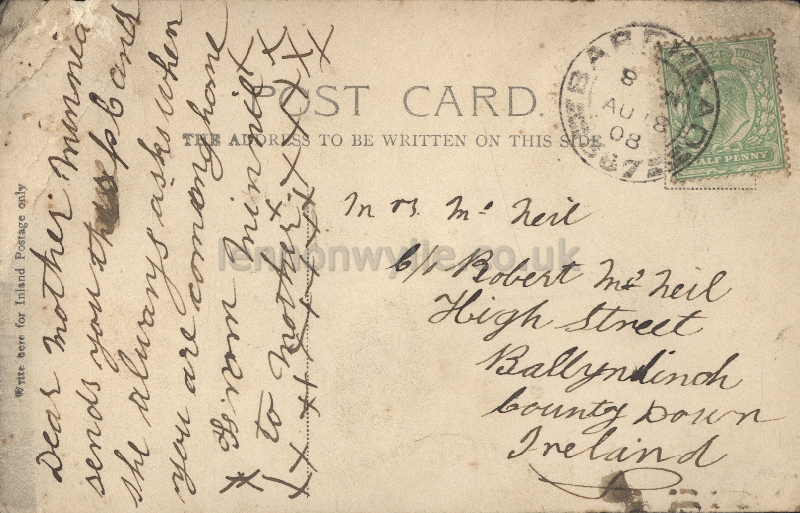 POST CARD.
THE ADDRESS TO BE WRITTEN ON THIS SIDE
Write here for Inland Postage only
Dear Mother Minnie
sends you this P Card
she always asks when
you are comong home
x From Minnie x x x
to Mother x x x x x x
x x x x x x x x x
BARRHEAD
8
AU 18
08
HALF PENNY
Mrs. Mc Neil
C/o Robert Mc Neil
High Street
Ballyndinch
County Down
Ireland
lennonwylie.co.uk